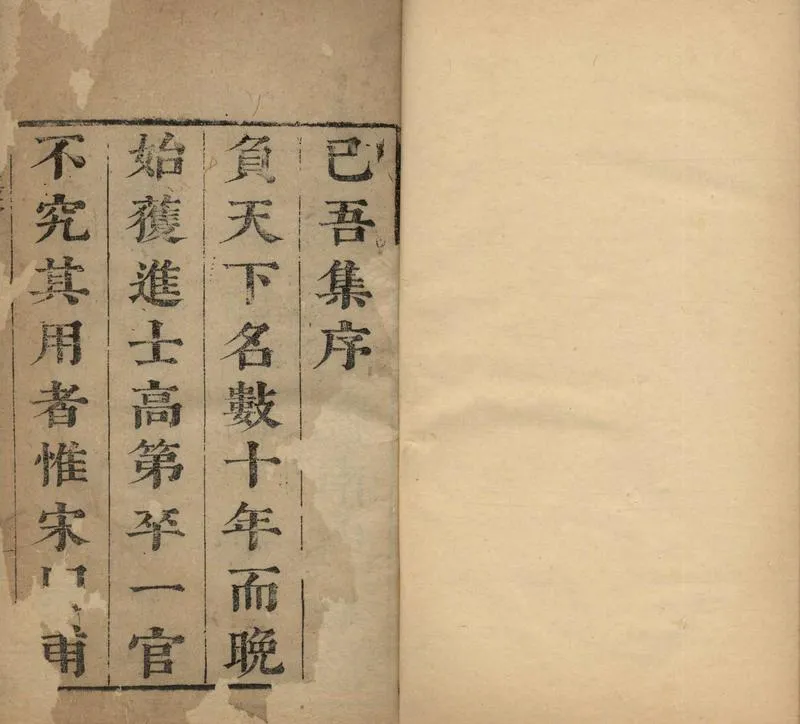 己吾集序
負天下名數十年而晚
始獲進士高第卒一官
不究其用者惟宋甫